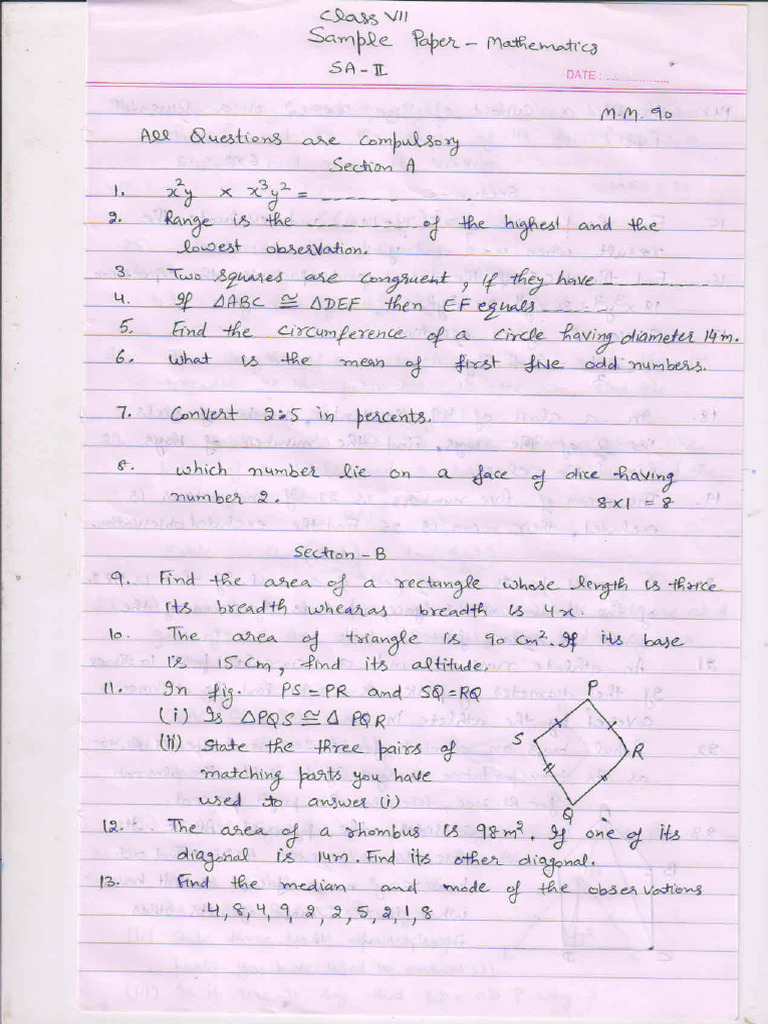 Class VII
Sample Paper - Mathematics
SA - II
DATE : ....................
M.M. 90
All Questions are Compulsory
Section A
1. x²y × x³y² = _ _ _ _ _ _ _ .
2. Range is the _ _ _ _ _ _ _ of the highest and the
lowest observation.
3. Two squares are congruent, if they have _ _ _ _ _ _
4. If △ABC ≅ △DEF then EF equals _ _ _ _ _
5. Find the circumference of a circle having diameter 14m.
6. What is the mean of first five odd numbers.
7. Convert 2:5 in percents.
8. which number lie on a face of dice having
number 2. 8×1 = 8
Section - B
9. Find the area of a rectangle whose length is thrice
its breadth whearas breadth is 4x.
10. The area of triangle is 90 cm². If its base
is 15 Cm, find its altitude.
11. In fig. PS = PR and SQ = RQ
(i) Is △PQS ≅ △ PQR
(ii) State the three pairs of
matching parts you have
used to answer (i)
P
S
R
Q
12. The area of a rhombus is 98m². If one of its
diagonal is 14m. Find its other diagonal.
13. Find the median and mode of the observations
4, 8, 4, 9, 2, 2, 5, 2, 1, 8